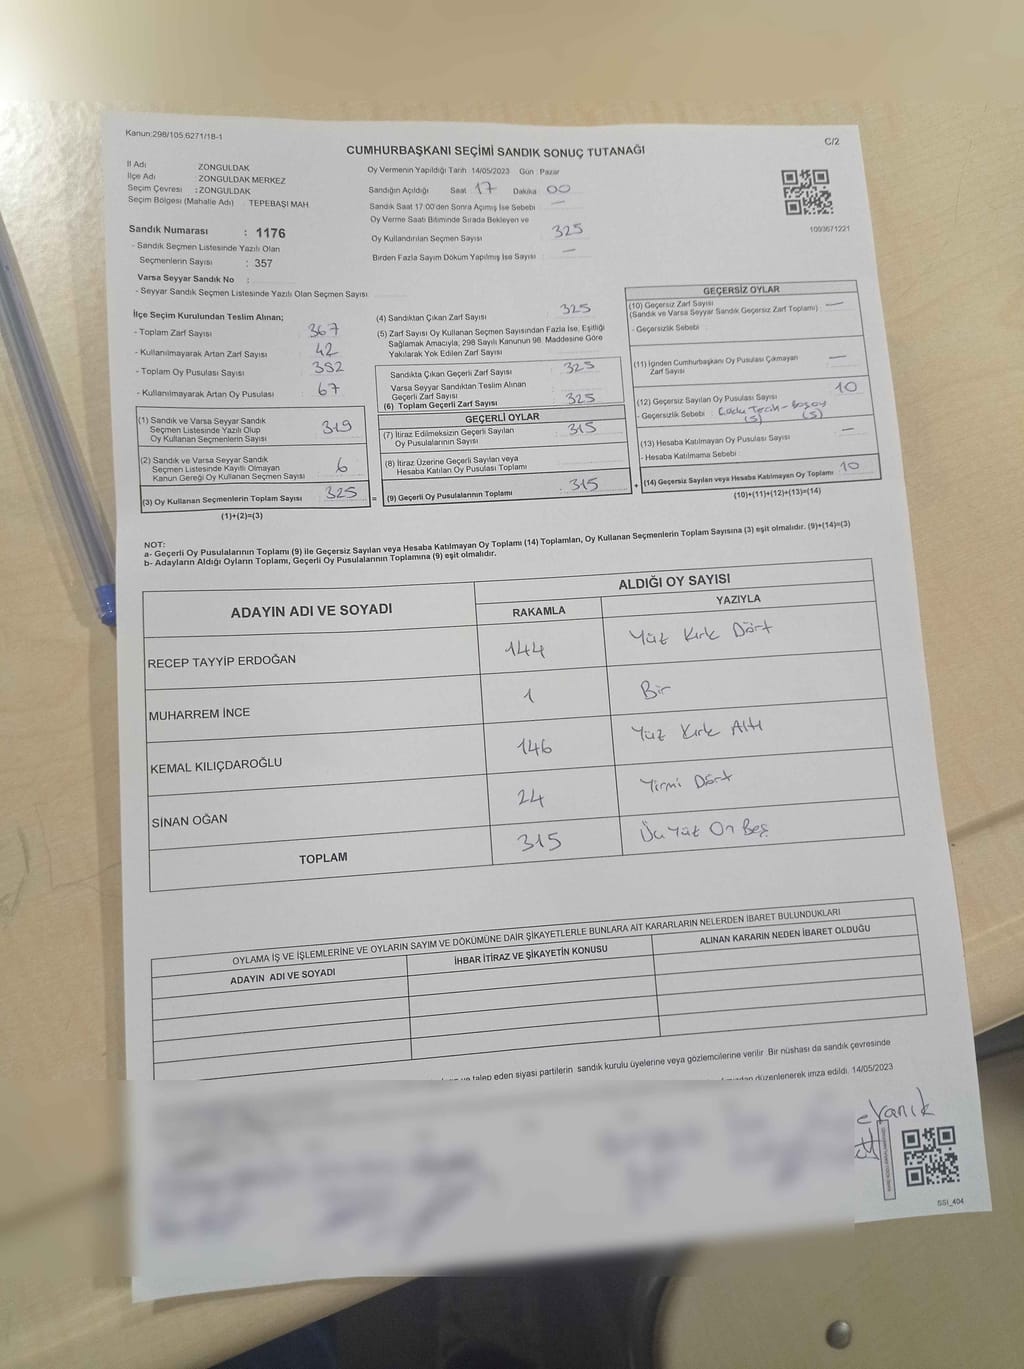 Kanun:298/105.6271/18-1
C/2
CUMHURBAŞKANI SEÇİMİ SANDIK SONUÇ TUTANAĞI
İl Adı ZONGULDAK
İlçe Adı ZONGULDAK MERKEZ
Seçim Çevresi : ZONGULDAK
Seçim Bölgesi (Mahalle Adı) TEPEBAŞI MAH
Sandık Numarası : 1176
- Sandık Seçmen Listesinde Yazılı Olan
Seçmenlerin Sayısı : 357
Varsa Seyyar Sandık No :
- Seyyar Sandık Seçmen Listesinde Yazılı Olan Seçmen Sayısı
Oy Vermenin Yapıldığı Tarih 14/05/2023 Gün : Pazar
Sandığın Açıldığı Saat 17 Dakika 00
Sandık Saat 17:00'den Sonra Açımış İse Sebebi —
Oy Verme Saati Bitiminde Sırada Bekleyen ve
Oy Kullandırılan Seçmen Sayısı 325
Birden Fazla Sayım Döküm Yapılmış İse Sayısı —
1093671221
İlçe Seçim Kurulundan Teslim Alınan;
- Toplam Zarf Sayısı 367
- Kullanılmayarak Artan Zarf Sayısı 42
- Toplam Oy Pusulası Sayısı 392
- Kullanılmayarak Artan Oy Pusulası 67
(1) Sandık ve Varsa Seyyar Sandık
Seçmen Listesinde Yazılı Olup
Oy Kullanan Seçmenlerin Sayısı 319
(2) Sandık ve Varsa Seyyar Sandık
Seçmen Listesinde Kayıtlı Olmayan
Kanun Gereği Oy Kullanan Seçmen Sayısı 6
(3) Oy Kullanan Seçmenlerin Toplam Sayısı 325 =
(1)+(2)=(3)
(4) Sandıktan Çıkan Zarf Sayısı 325
(5) Zarf Sayısı Oy Kullanan Seçmen Sayısından Fazla İse, Eşitliği
Sağlamak Amacıyla, 298 Sayılı Kanunun 98. Maddesine Göre
Yakılarak Yok Edilen Zarf Sayısı
Sandıkta Çıkan Geçerli Zarf Sayısı 325
Varsa Seyyar Sandıktan Teslim Alınan
Geçerli Zarf Sayısı
(6) Toplam Geçerli Zarf Sayısı 325
GEÇERLİ OYLAR
(7) İtiraz Edilmeksizin Geçerli Sayılan
Oy Pusulalarının Sayısı : 315
(8) İtiraz Üzerine Geçerli Sayılan veya
Hesaba Katılan Oy Pusulası Toplamı
(9) Geçerli Oy Pusulalarının Toplamı : 315 +
GEÇERSİZ OYLAR
(10) Geçersiz Zarf Sayısı
(Sandık ve Varsa Seyyar Sandık Geçersiz Zarf Toplamı) : —
- Geçersizlik Sebebi
(11) İçinden Cumhurbaşkanı Oy Pusulası Çıkmayan
Zarf Sayısı —
(12) Geçersiz Sayılan Oy Pusulası Sayısı 10
- Geçersizlik Sebebi :
(5) (5)
(13) Hesaba Katılmayan Oy Pusulası Sayısı —
- Hesaba Katılmama Sebebi :
(14) Geçersiz Sayılan veya Hesaba Katılmayan Oy Toplamı 10
(10)+(11)+(12)+(13)=(14)
NOT:
a- Geçerli Oy Pusulalarının Toplamı (9) ile Geçersiz Sayılan veya Hesaba Katılmayan Oy Toplamı (14) Toplamları, Oy Kullanan Seçmenlerin Toplam Sayısına (3) eşit olmalıdır. (9)+(14)=(3)
b- Adayların Aldığı Oyların Toplamı, Geçerli Oy Pusulalarının Toplamına (9) eşit olmalıdır.
ADAYIN ADI VE SOYADI ALDIĞI OY SAYISI
RAKAMLA YAZIYLA
RECEP TAYYİP ERDOĞAN 144 Yüz Kırk Dört
MUHARREM İNCE 1 Bir
KEMAL KILIÇDAROĞLU 146 Yüz Kırk Altı
SİNAN OĞAN 24 Yirmi Dört
TOPLAM 315 Üç Yüz On Beş
OYLAMA İŞ VE İŞLEMLERİNE VE OYLARIN SAYIM VE DÖKÜMÜNE DAİR ŞİKAYETLERLE BUNLARA AİT KARARLARIN NELERDEN İBARET BULUNDUKLARI
ADAYIN ADI VE SOYADI İHBAR İTİRAZ VE ŞİKAYETİN KONUSU ALINAN KARARIN NEDEN İBARET OLDUĞU
talep eden siyasi partilerin sandık kurulu üyelerine veya gözlemcilerine verilir. Bir nüshası da sandık çevresinde
düzenlenerek imza edildi. 14/05/2023
SSI_404